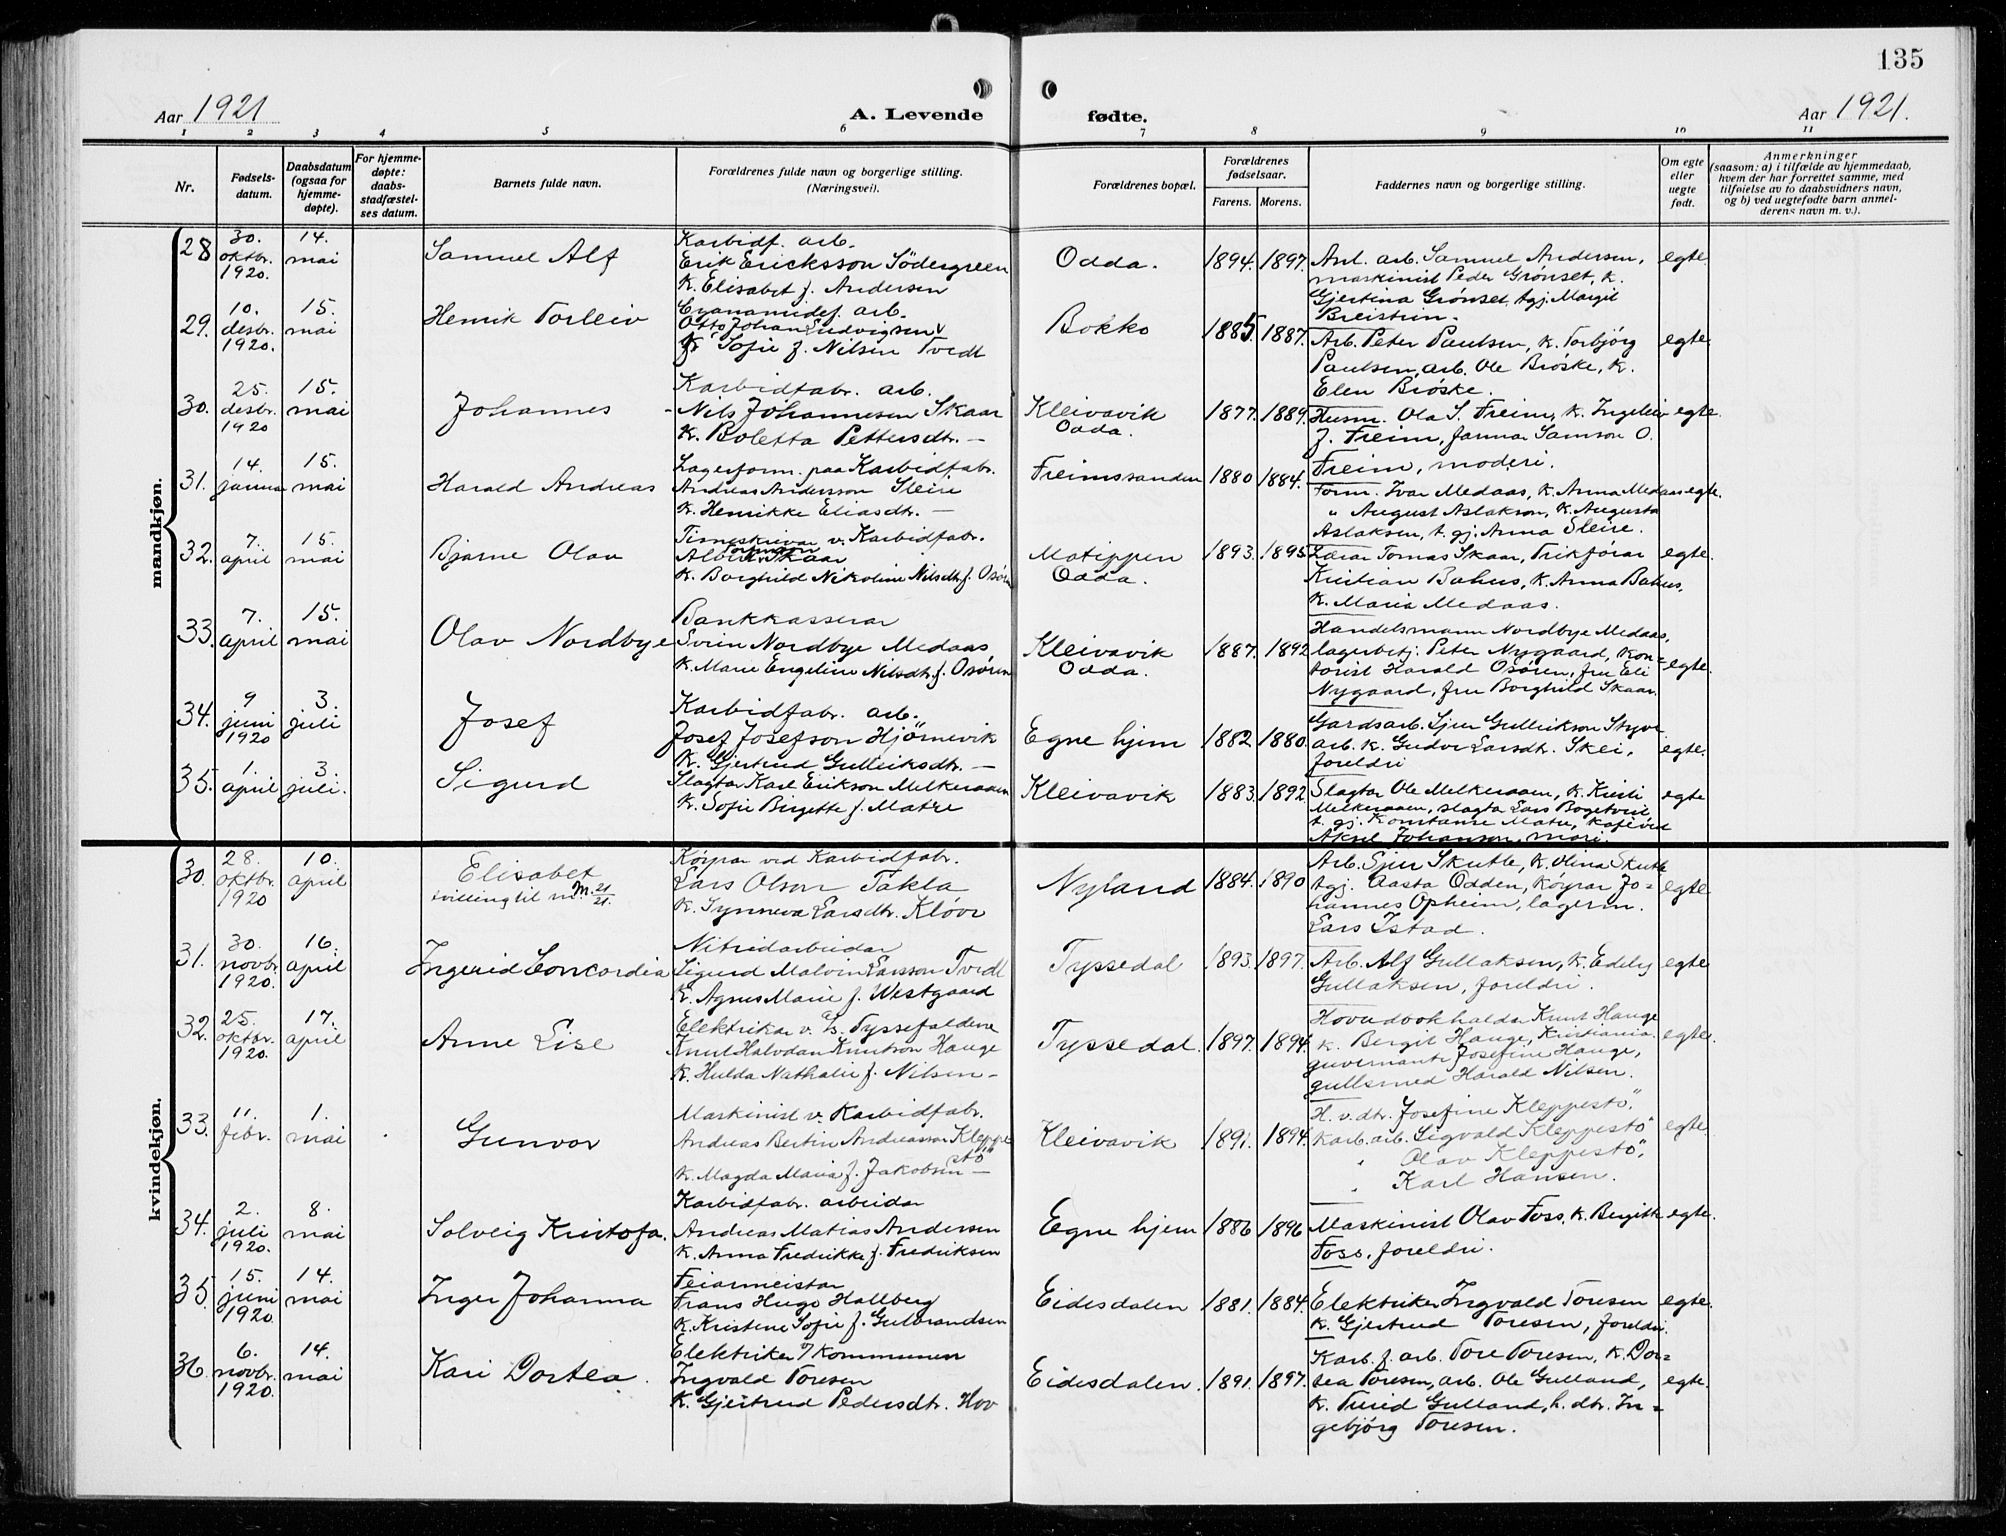 135
Aar 1921
A. Levende
fødte.
Aar 1921.
1 2 3 4 5 6 7 8 9 10 11
Nr.
Fødsels-
datum.
Daabsdatum
(ogsaa for
hjemme-
døpte).
For hjemme-
døpte:
daabs-
stadfæstel-
ses datum.
Barnets fulde navn.
Forældrenes fulde navn og borgerlige stilling.
(Næringsvei).
Forældrenes bopæl.
Forældrenes
fødselsaar.
Farens. Morens.
Faddernes navn og borgerlige stilling.
Om egte
eller
uegte
født.
Anmerkninger
(saasom: a) i tilfælde av hjemmedaab,
hvem der har forrettet samme, med
tilføielse av to daabsvidners navn,
og b) ved uegtefødte barn anmel-
derens navn m. v.).
mandkjøn.
28
30.
oktbr.
1920.
14.
mai
Samuel Alf
Karbidf. arb.
Erik Ericksson Södergreen
K. Elisabet f. Andersen
Odda.
1894. 1897.
Anl. arb. Samuel Andersen,
maskinist Peder Grønset, k.
Gjertina Grønset, tgj. Margit
Breistein.
egte.
29.
10.
desbr.
1920.
15.
mai
Henrik Torleiv
Cyanamidf. arb.
Otto Johan Ludvigsen
K. Sofie f. Nilsen Tvedt
Bokko
1885. 1887.
Arb. Peter Paulsen, k. Torbjörg
Paulsen, arb. Ole Brøske, k.
Elen Brøske.
egte.
30.
25.
desbr.
1920
15.
mai
Johannes
Karbidfabr. arb.
Nils Johannesen Skaar
K. Boletta Pettersdtr. —
Kleivavik
Odda.
1877. 1889.
Husm. Ola S. Freim, k. Ingeleiv
f. Freim, Samson O.
Freim, moderi.
egte.
31.
14.
januar
15.
mai
Harald Andreas
Lagerform. paa Karbidfabr.
Andreas Andersson Sleire
K. Henrikke Eliasdtr. —
Freimssanden
1880 1884.
Form. Ivar Medaas, k. Anna Medaas
" August Aslakson, k. Augusta
Aslaksen, t. gj. Anna Sleire.
egte.
32.
7.
april
15.
mai
Bjarne Olav
Timeskrivar v. Karbidfabr.
Albert Skaar
K. Borghild Nikoline Nilsdtr. f. Osøren
Motippen
Odda.
1893. 1895.
Lærar Tomas Skaar, Trikførar
Kristian Bahus, k. Anna Bahus,
k. Maria Medaas.
egte.
33.
7.
april
15.
mai
Olav Nordbye
Bankkasserar
Svein Nordbye Medaas
K. Marie Engeline Nilsdtr. f. Osøren
Kleivavik
Odda.
1887. 1892
Handelsmann Nordbye Medaas,
lagerbetj. Peter Nygaard, kon-
torist Harald Osøren, fru Eli
Nygaard, fru Borghild Skaar.
egte.
34.
9
juni
1920
3.
juli
Josef
Karbidfabr. arb.
Josef Josefson Hjørnevik
K. Gjertrud Gulleiksdtr. —
Egne hjem
1882 1880.
Gardsarb. Sjur Gulleikson Styve
arb. k. Gudve Larsdtr. Skei,
foreldri
egte.
35.
1.
april
3.
juli.
Sigurd
Slagtar Karl Erikson Melkeraaen
K. Sofie Birgitte f. Matre
Kleivavik
1883. 1892
Slagtar Ole Melkeraaen, k. Kristi
Melkeraaen, slagtar Lars Bogetveit,
t. gj. Konstanse Matre, kafévert
Aksel Johanson, mori.
egte
kvindekjøn.
30.
28.
oktbr.
1920
10.
april
Elisabet
tvilling til nr. M. 21/21.
Køyrar ved Karbidfabr.
Lars Olson Takla
K. Synneva Larsdtr. Kløve
Nyland
1884. 1890
Arb. Sjur Skutle, k. Olina Skutle
tgj. Aasta Odden, Køyrar Jo-
hannes Opheim, lagerm.
Lars Istad.
egte
31.
30.
novbr.
1920.
16.
april
Ingerid Concordia
Nitridarbeidar
Sigurd Malvin Larsson Tvedt
K. Agnes Marie f. Westgaard
Tyssedal
1893. 1897.
Arb. Alf Gullaksen, k. Edely
Gullaksen, foreldri.
egte
32.
25.
oktbr.
1920.
17.
april
Anne Lise
Elektrikar v. a/s. Tyssefaldene
Knut Halvdan Knutson Hauge
K. Hulda Nathalie f. Nilsen —
Tyssedal.
1897. 1894.
Hovudbokhaldar Knut Hauge
k. Bergit Hauge, Kristiania
guvernante Josefine Hauge,
gullsmed Harald Nilsen.
egte.
33.
11.
febr.
1.
mai
Gunvor
Maskinist v. Karbidfabr.
Andreas Bertin Andreasson Kleppe-
stö
K. Magda Maria f. Jakobsen —
Kleivavik
1891. 1894.
H. v. dtr. Josefine Kleppestö.
Karb. arb. Sigvald Kleppestö
" Olav Kleppestö,
" Karl Hansen.
egte.
34.
2.
juli
1920.
8.
mai
Solveig Kristofa.
Karbidfabr. arbeidar
Andreas Matias Andersen
K. Anna Fredrikke f. Fredriksen
Egne hjem
1886 1896
Maskinist Olav Foss, k. Bergitte
Foss, foreldri.
egte.
35.
15.
juni
1920.
14.
mai
Inger Johanna
Feiarmeistar
Frans Hugo Hallberg
K. Kristene Sofie f. Gulbrandsen
Eidesdalen
1881. 1884.
Elektriker Ingvald Toresen
k. Gjertrud Toresen, foreldri.
egte.
36.
6.
novbr.
1920.
14.
mai
Kari Dortea.
Elektriker i kommunen
Ingvald Toresen
K. Gjertrud Pedersdtr. Hov
Eidesdalen.
1891. 1897.
Karb. f. arb. Tore Toresen, k. Dor-
tea Toresen, arb. Ole Gulland,
k. Turid Gulland, h. dtr. In-
gebjörg Toresen.
egte.